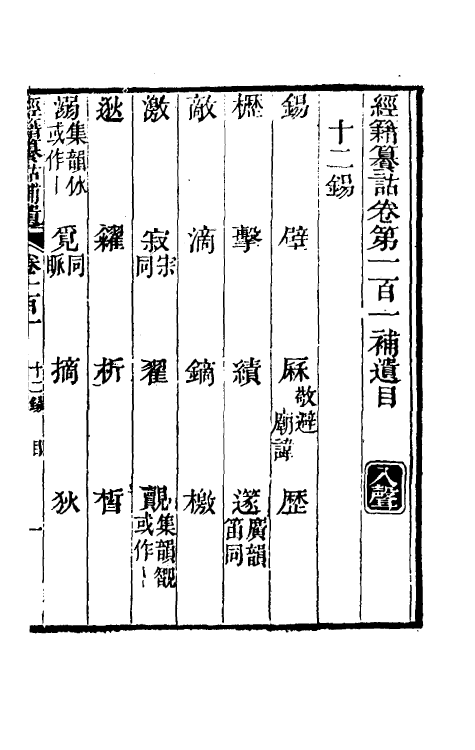 經籍籑詁卷第一百一補遺目 入聲
十二錫
錫 壁 厤敬避廟諱 歷
櫪 擊 績 蓫廣韻笛同
敵 滴 鏑 檄
激 寂宋同 翟 覿集韻覩或作丨
逖 糴 析 皙
溺集韻休或作丨 覓同脈 摘 狄
經籍籑詁補遺 卷一百一 十二錫 目 一